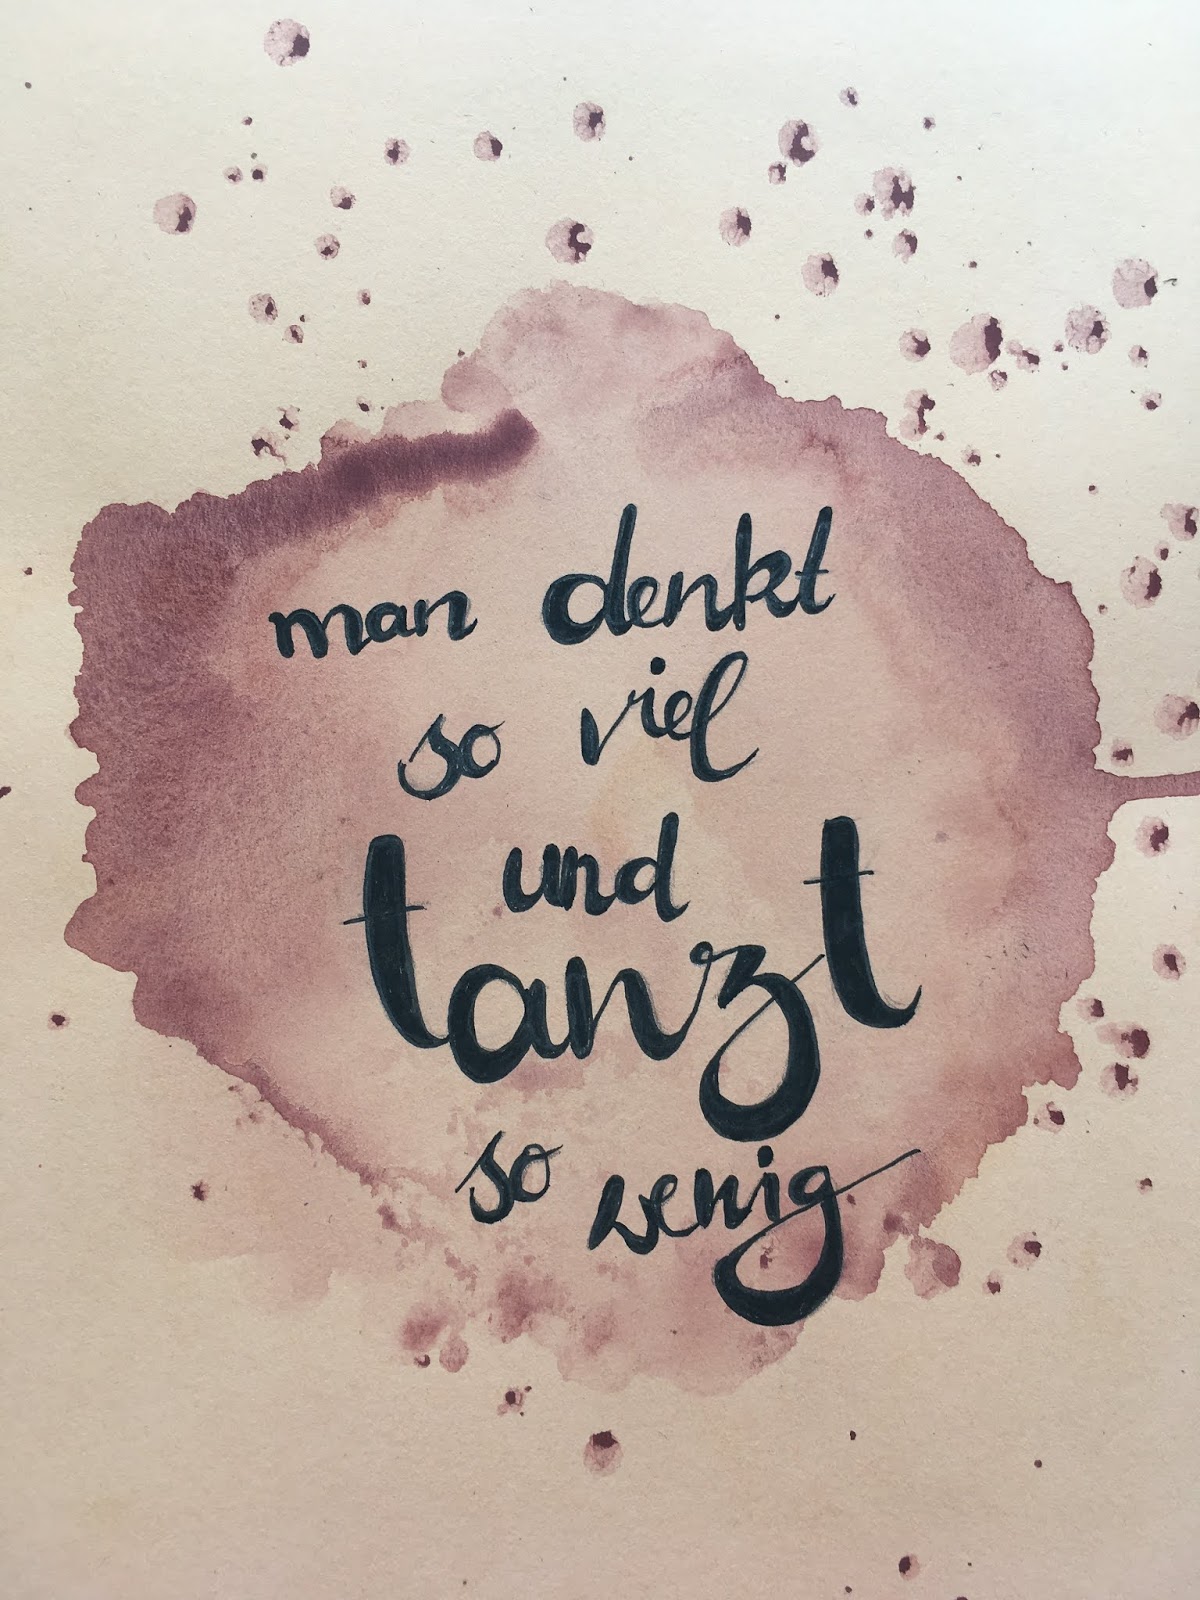 man denkt
so viel
und
tanzt
so wenig